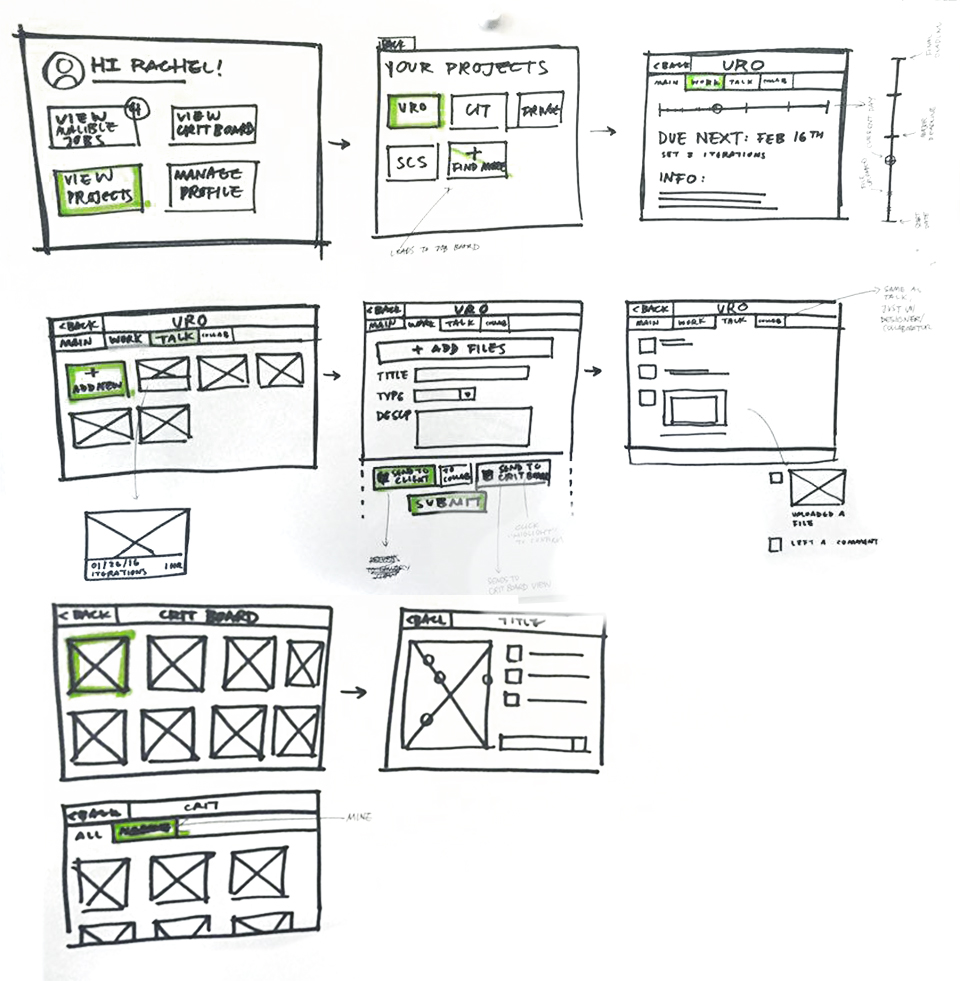 HI RACHEL!
VIEW
AVALIBLE
JOBS
4
VIEW
CRIT BOARD
VIEW
PROJECTS
MANAGE
PROFILE
BACK
YOUR PROJECTS
URO
CIT
SCS
+
FIND MORE
LEADS TO JOB BOARD
< BACK
URO
MAIN
WORK
TALK
COLLAB
DUE NEXT: FEB 16TH
SET 2 ITERATIONS
INFO:
< BACK
URO
MAIN
WORK
TALK
COLLAB
+
ADD NEW
01/26/16
1 HR
ITERATIONS
< BACK
URO
MAIN
WORK
TALK
COLLAB
+ ADD FILES
TITLE
TYPE
DESCRP
SEND TO
CLIENT
TO
COLLAB
SEND TO
CRIT BOARD
SUBMIT
SENDS TO
CRIT BOARD VIEW
< BACK
URO
MAIN
WORK
TALK
COLLAB
SAME AS
TALK,
JUST W/
DESIGNER/
COLLABORATOR
UPLOADED A
FILE
LEFT A COMMENT
< BACK
CRIT BOARD
< BACK
TITLE
< BACK
CRIT
ALL
MINE